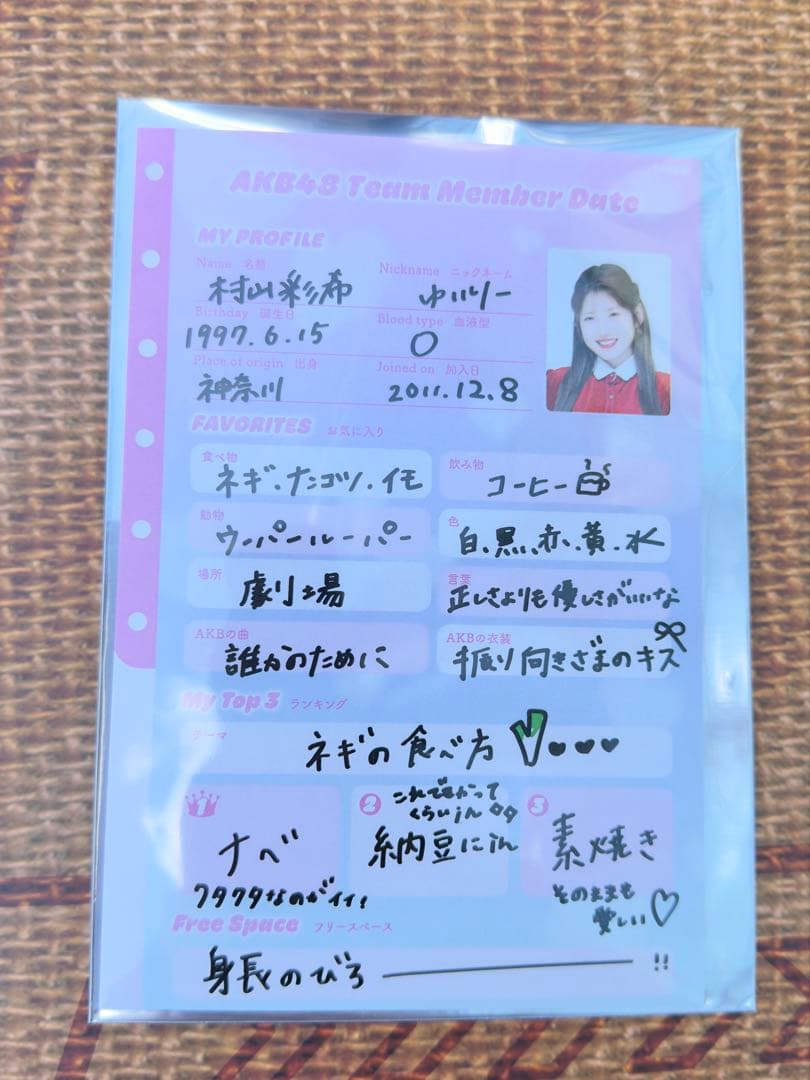 AKB48 Team Member Date
MY PROFILE
Name 名前 Nickname ニックネーム
村山彩希 ゆいりー
Birthday 誕生日 Blood type 血液型
1997.6.15 O
Place of origin 出身 Joined on 加入日
神奈川 2011.12.8
FAVORITES お気に入り
食べ物 飲み物
ネギ、ナンコツ、イモ コーヒー
動物 色
ウーパールーパー 白、黒、赤、黄、水
場所 言葉
劇場 正しさよりも優しさがいいな
AKBの曲 AKBの衣装
誰かのために 手振り向きざまのキス
My Top 3 ランキング
テーマ
ネギの食べ方
1 2 3
これでもかって
くらいin
ナベ 納豆にin 素焼き
クタクタなのがイイ! そのままも
愛しい
Free Space フリースペース
身長のびろ ー !!